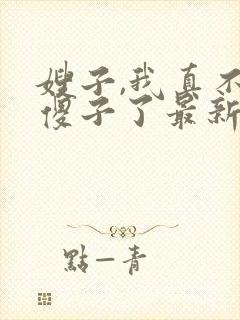 嫂子,我真不
傻子了最新
點一青